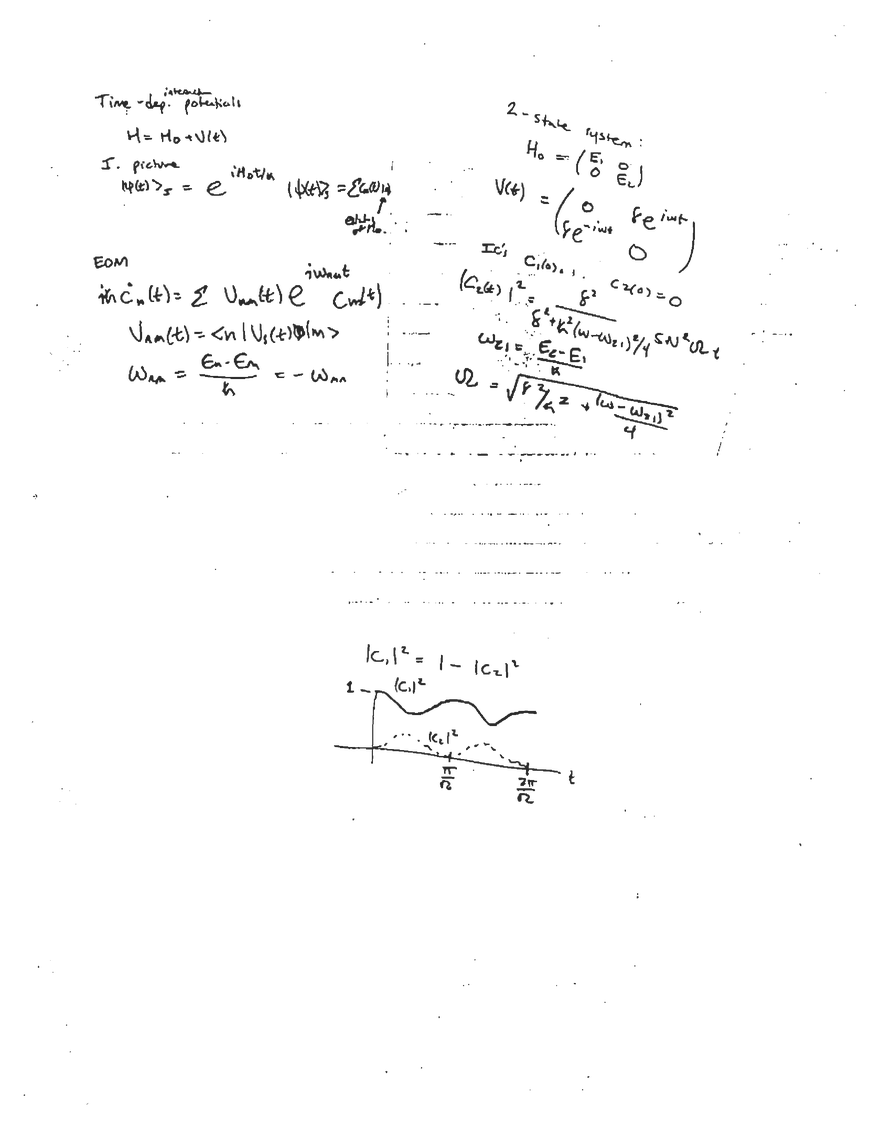 Time-dep. interact potentials
H = H₀ + V(t)
I. picture
|ψ(t)>_I = e^{iH₀t/ħ} |ψ(t)>_S = Σ Cₙ(t)|n>
of H₀.
EOM
iħ ċₙ(t) = Σ Vₙₘ(t) e^{iωₙₘt} Cₘ(t)
Vₙₘ(t) = <n|V_S(t)|m>
ωₙₘ = (Eₙ - Eₘ)/ħ = -ωₘₙ
2-state system:
H₀ = (E₁ 0
0 E₂)
V(t) = (0 γe^{iωt}
γe^{-iωt} 0)
IC's C₁(0) = 1 C₂(0) = 0
|C₂(t)|² = γ²/(γ² + ħ²(ω-ω₂₁)²/4) SIN² Ω t
ω₂₁ = (E₂ - E₁)/ħ
Ω = √(γ²/ħ² + (ω - ω₂₁)²/4)
|C₁|² = 1 - |C₂|²
1 |C₁|²
|C₂|²
π/Ω 2π/Ω t